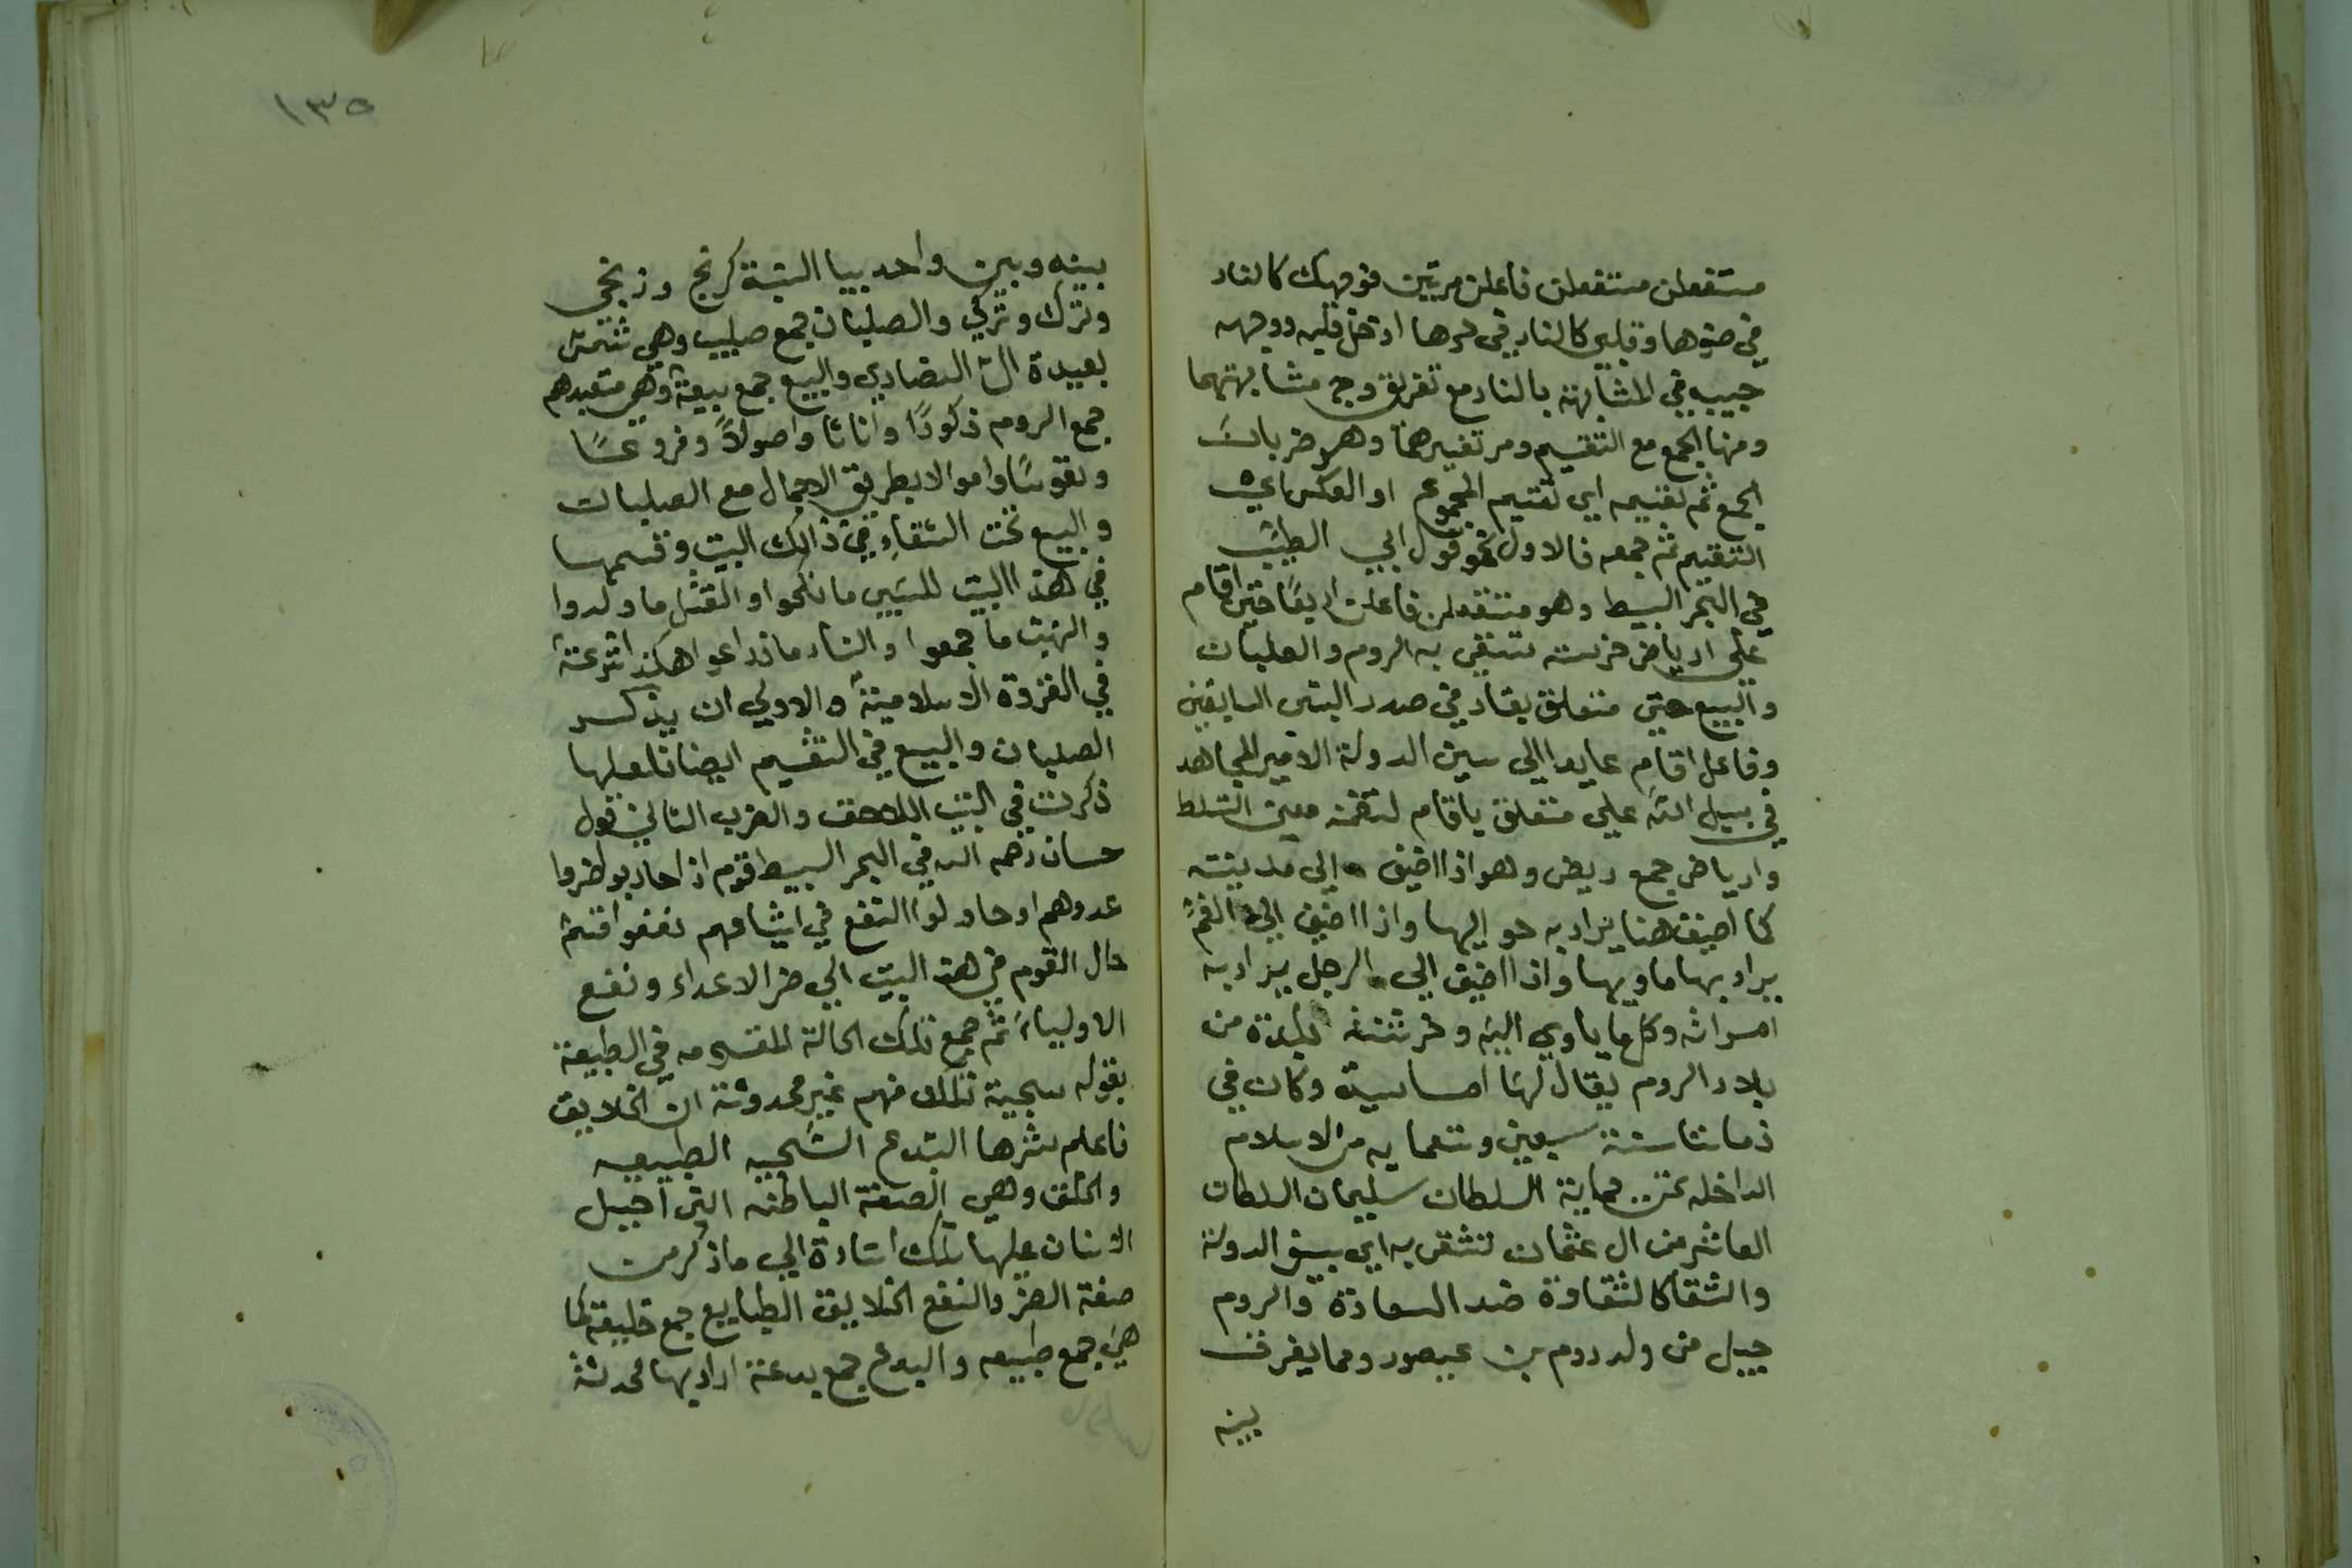 مستفعلن مستفعلن فاعلن مرتين فوجهك كالنار
في ضوءها وقلبي كالنار في حرها ادخل قلبه ووجهه
حبيبه في المشابهة بالنار مع تفريق وجه مشابهتهما
ومنها الجمع مع التقسيم ومر تفسيرهما وهو ضربان
الجمع ثم تقسيمه اي تقسيم المجموع او العكس اي
التقسيم ثم جمعه فالاول نحو قول ابي الطيب
في البحر البسيط وهو مستفعلن فاعلن اربعا حتى اقام
على ارباض خرشنه تشقى به الروم والصلبان
والبيع حتى متعلق بقاد في صدر البتين السابقين
وفاعل اقام عايد الي سيف الدولة الامير المجاهد
في سبيل الله على متعلق باقام لتضمنه معنى التسلط
وارباض جمع ربض وهو اذا اضيف الى مدينته
كما اضيف هنا يراد به حواليها واذا اضيف الي الغنم
يراد بها ماويها واذا اضيف الي الرجل يراد به
امراته وكل ما ياوي اليه وخرشنة بلدة من
بلاد الروم يقال لها اماسية وكان في
زماننا سنة سبعين وتسعمايه من الاسلام
الداخله تحت حماية السلطان سليمان السلطان
العاشر من ال عثمان تشقى به اي بسيف الدولة
والشقا كالشقاوة ضد السعادة والروم
جيل من ولد روم بن عيصور ومما يفرق
بينه
١٣٥
بينه وبين واحد بيا النسبة كزنج وزنجي
وترك وتركي والصلبان جمع صليب وهي
النصاري والبيع جمع بيعة وهي متعبدهم
جمع الروم ذكورا واناثا واصولا وفروعا
ونفوسا واموالا بطريق الاجمال مع الصلبان
والبيع تحت الشقاء في ذالك البيت وقسمها
في هذا البيت للسبي ما نكحوا والقتل ما ولدوا
والنهب ما جمعوا والنار ما زرعوا هكذا شرعة
في الغزوة الاسلامية والاولي ان يذكر
الصلبان والبيع في التقسيم ايضا فلعلها
ذكرت في البيت اللاحق والضرب الثاني قول
حسان رحمه الله في البحر البسيط قوم اذا حاربوا ضروا
عدوهم او حاولوا النفع في اشياعهم نفعوا قسم
حال القوم في هذا البيت الي ضر الاعداء ونفع
الاولياء ثم جمع تلك الحالة المقسومه في الطبيعة
بقوله سجية تلك منهم غير محدوثة ان الخلايق
فاعلم شرها البدع السجيه الطبيعيه
والخلق وهي الصفة الباطنه التي اجبل
الانسان عليها تلك اشارة الي ما ذكر من
صفة الضر والنفع الخلايق الطبايع جمع خليقة كما
هي جمع طبيعه والبدع جمع بدعة اراد بها محدثة